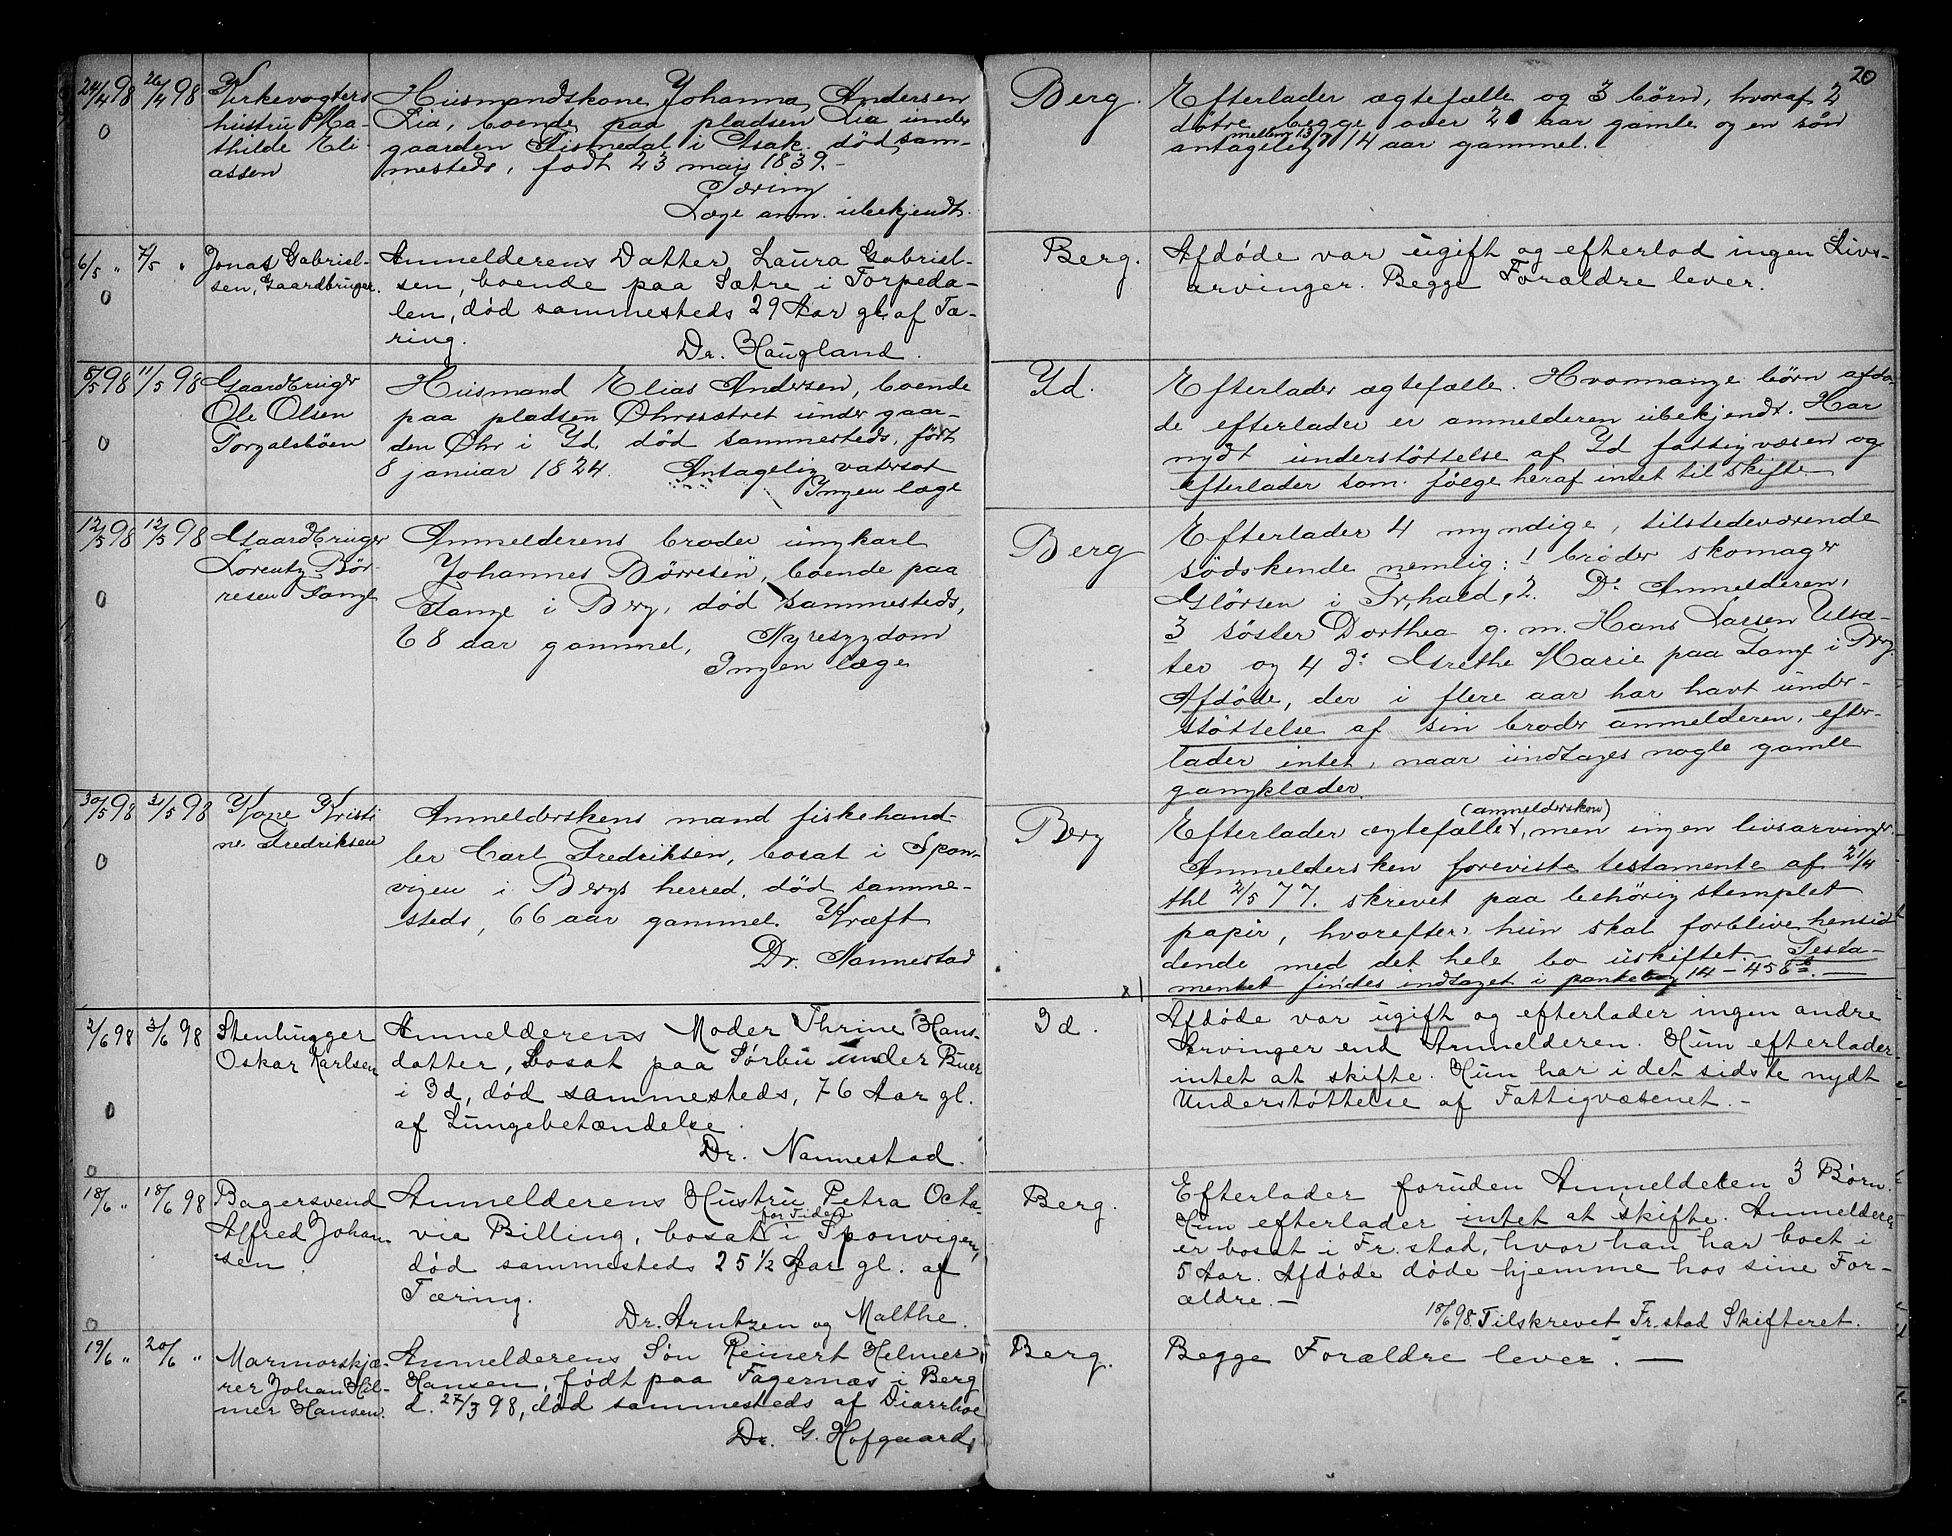 20
24/4 98 26/4 98 Kirkevogters
hustru Ma-
thilde Eli-
assen
0
Husmandskone Johanna Andersen
Lia, boende paa pladsen Lia under
gaarden Tismedal i Asak. død sam-
mesteds, født 23 mai 1839. -
Tæring
Læge anm. ubekjendt.
Berg.
Efterlader ægtefælle og 3 børn, hvoraf 2
døtre begge over 21 aar gamle og en søn
antagelig mellem 13 & 14 aar gammel.
6/5 " 7/5 " Jonas Gabriel-
sen, Gaardbruger.
0
Anmelderens Datter Laura Gabriel-
sen, boende paa Sætre i Torpeda-
len, død sammesteds 29 Aar gl. af Tæ-
ring.
Dr. Haugland.
Berg.
Afdøde var ugift og efterlod ingen Livs-
arvinger. Begge Forældre lever.
8/5 98 11/5 98 Gaardbruger
Ole Olsen
Torgalsbøen
0
Husmand Elias Andersen, boende
paa pladsen Øhrssætret under gaar-
den Øhr i Id, død sammesteds, født
8 januar 1824. Antagelig vatersot
Ingen læge
Id.
Efterlader ægtefælle. Hvormange børn afdø-
de efterlader er anmelderen ubekjendt. Har
nydt understøttelse af Id fattigvæsen og
efterlader som følge heraf intet til skifte.
12/5 98 12/5 98 Gaardbruger
Lorentz Bør-
resen Tange
0
Anmelderens broder ungkarl
Johannes Børresen, boende paa
Tange i Berg, død sammesteds,
68 aar gammel, Nyresygdom
Ingen læge
Berg
Efterlader 4 myndige, tilstedeværende
sødskende nemlig: 1 broder skomager
Glørsen i Fr,hald, 2. Do Anmelderen,
3 søster Dorthea g. m. Hans Larsen Ulsæ-
ter og 4 do Grethe Marie paa Tange i Berg.
Afdøde, der i flere aar har havt under-
støttelse af sin broder anmelderen, efter-
lader intet, naar undtages nogle gamle
gangklæder.
30/5 98 31/5 98 Kone Kristi
ne Fredriksen
0
Anmelderskens mand fiskehand-
ler Carl Fredriksen, bosat i Spon-
vigen i Bergs herred, død samme-
steds, 66 aar gammel. Kræft
Dr. Nannestad
Berg
(anmeldersken)
Efterlader ægtefælle, men ingen livsarvinger.
Anmeldersken foreviste testamente af 21/4
thl 2/5 77. skrevet paa behørig stemplet
papir, hvorefter hun skal forblive hensid
dende med det hele bo uskiftet. Testa-
mentet findes indtaget i pantebog 14 - 458 . -
2/6 98 3/6 98 Stenhugger
Oskar Karlsen
0
Anmelderens Moder Thrine Hans-
datter, bosat paa Sørbu under Buer
i Id, død sammesteds, 76 Aar gl.
af Lungebetændelse.
Dr. Nannestad.
Id.
Afdøde var ugift og efterlader ingen andre
Arvinger end Anmelderen. Hun efterlader
intet at skifte. Hun har i det sidste nydt
Understøttelse af Fattigvæsenet. -
0
18/6 " 18/6 98 Bagersvend
Alfred Johan
sen
Anmelderens Hustru Petra Octa-
for Tiden
via Billing, bosat i Sponvigen,
død sammesteds 25 1/2 Aar gl. af
Tæring.
Dr. Arntzen og Malthe.
Berg.
Efterlader foruden Anmelderen 3 Børn.
Hun efterlader intet at skifte. Anmelderen
er bosat i Fr.stad, hvor han har boet i
5 Aar. Afdøde døde hjemme hos sine For-
ældre. -
18/6 98 Tilskrevet Fr.stad Skifteret.
0
19/6 " 20/6 " Marmorskjæ-
rer Johan Hil-
mer Hansen.
Anmelderens Søn Reinert Helmer
Hansen, født paa Fagernæs i Berg
d. 27/3 98, død sammesteds af Diarrhoe
Dr. G. Hofgaard
Berg.
Begge Forældre lever. -